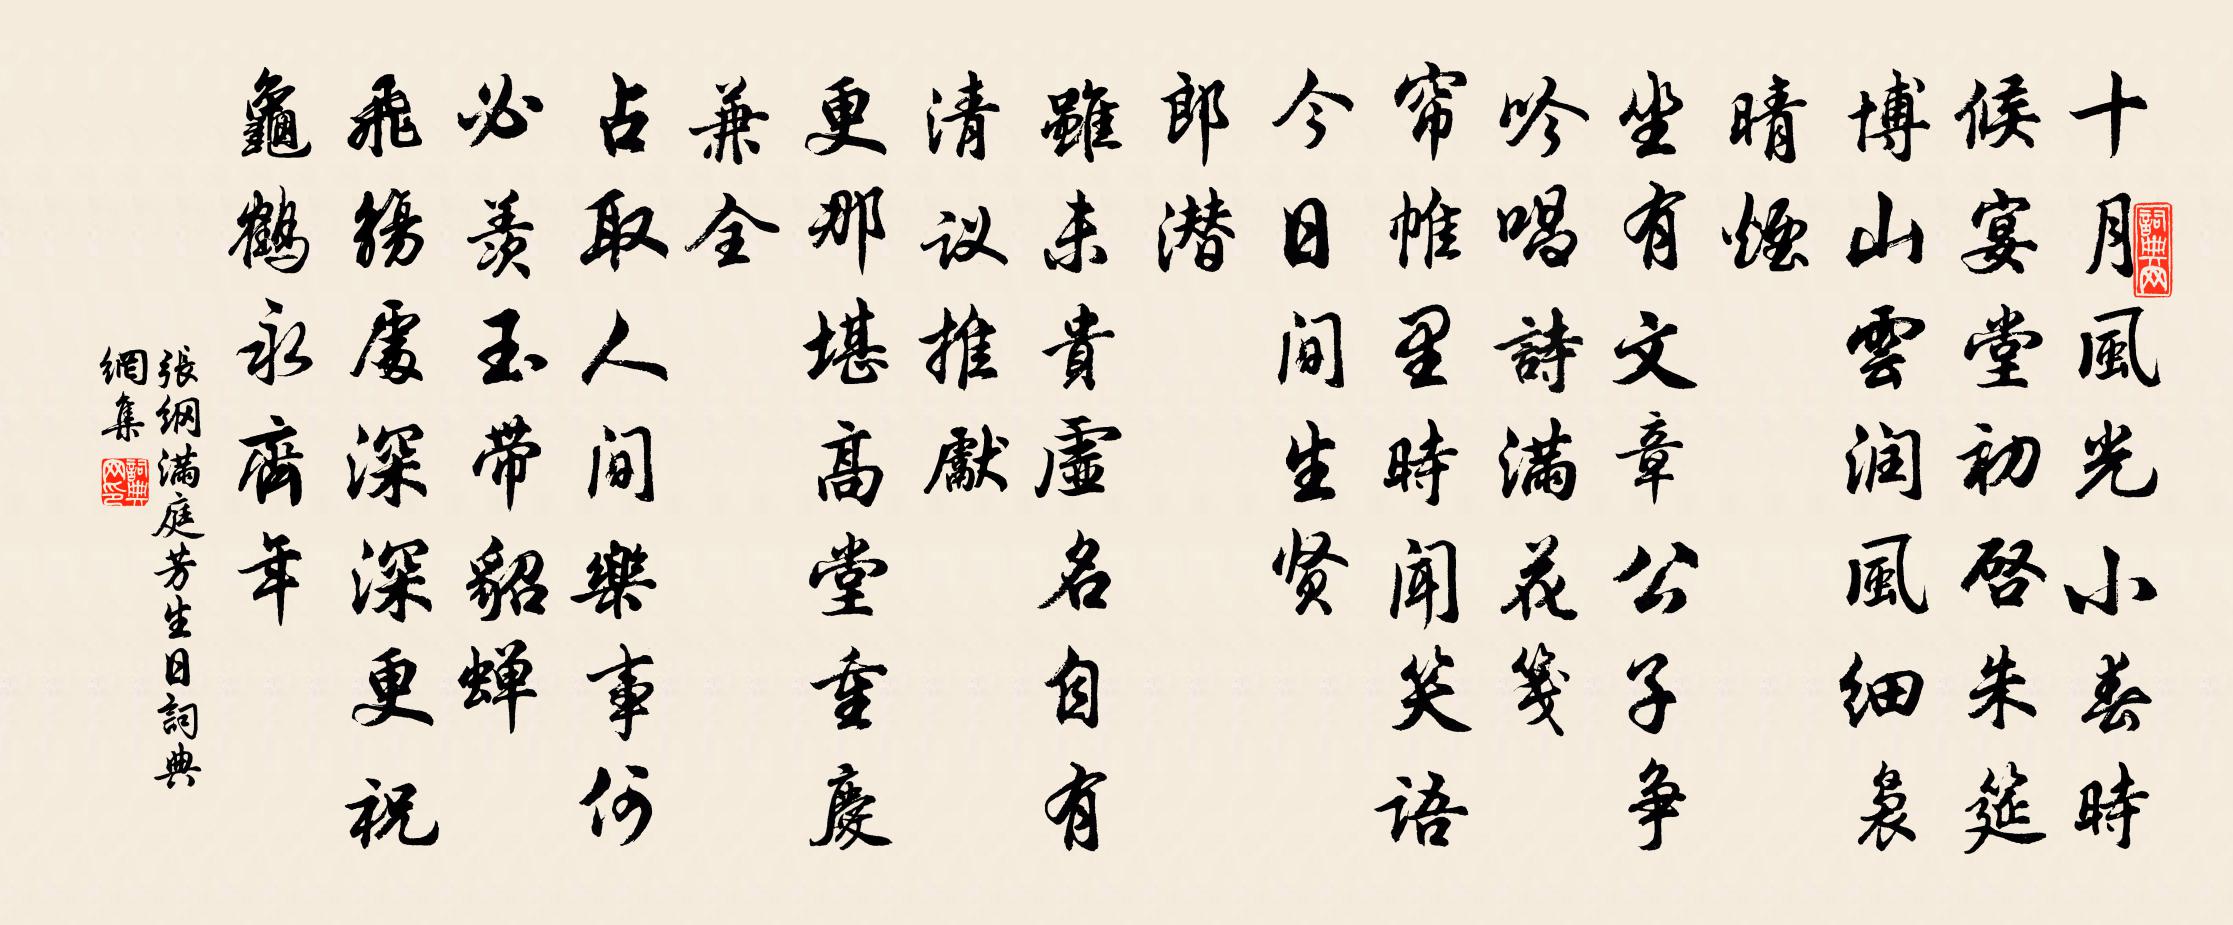 十月風光小春時
候宴堂初啓朱筵
博山雲润風細裊
晴煙
坐有文章公子争
吟唱詩滿花箋
帘帷里時聞笑语
今日間生贤
郎潜
雖未貴虛名自有
清议推獻
更那堪高堂重慶
兼全
占取人間樂事何
必羨玉带貂蝉
飛觴處深深更祝
龜鶴永齊年
張纲滿庭芳生日詞典
網集
詞典网
詞典网印